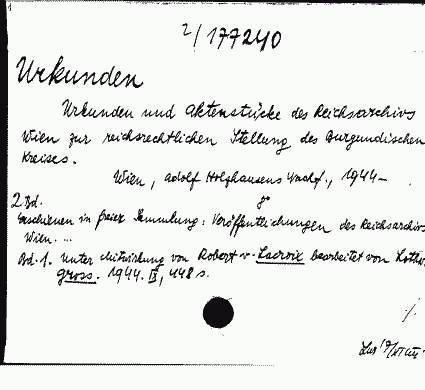 2/177240
Urkunden
Urkunden und Aktenstücke des Reichsarchivs
Wien zur reichsrechtlichen Stellung des Burgundischen
Kreises.
Wien, Adolf Holzhausens Nachf., 1944-
8°
2 Bd.
Erschienen in freier Sammlung: Veröffentlichungen des Reichsarchivs
Wien. ...
Bd. 1. Unter Mitwirkung von Robert v. Lacroix bearbeitet von Lothar
Gross. 1944. IX, 448 s.
./.